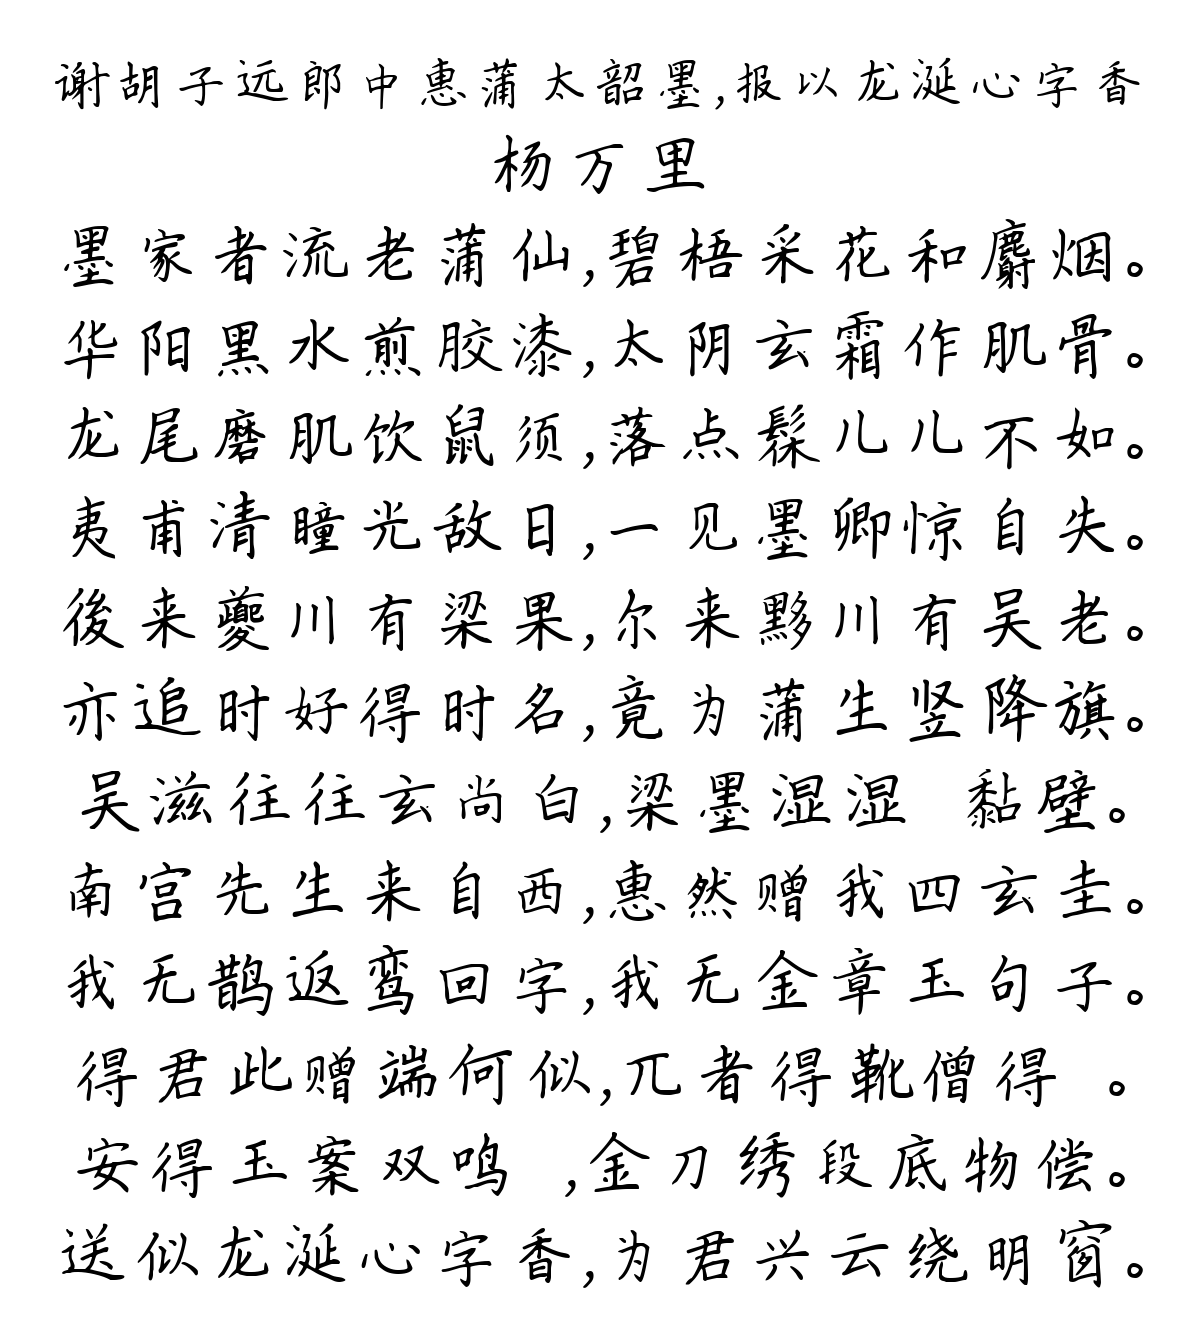 谢胡子远郎中惠蒲太韶墨,报以龙涎心字香
杨万里
墨家者流老蒲仙,碧梧采花和麝烟。
华阳黑水煎胶漆,太阴玄霜作肌骨。
龙尾磨肌饮鼠须,落点髹儿儿不如。
夷甫清瞳光敌日,一见墨卿惊自失。
後来夔川有梁果,尔来黟川有吴老。
亦追时好得时名,竟为蒲生竖降旗。
吴滋往往玄尚白,梁墨湿湿 黏壁。
南宫先生来自西,惠然赠我四玄圭。
我无鹊返鸾回字,我无金章玉句子。
得君此赠端何似,兀者得靴僧得 。
安得玉案双鸣 ,金刀绣段底物偿。
送似龙涎心字香,为君兴云绕明窗。